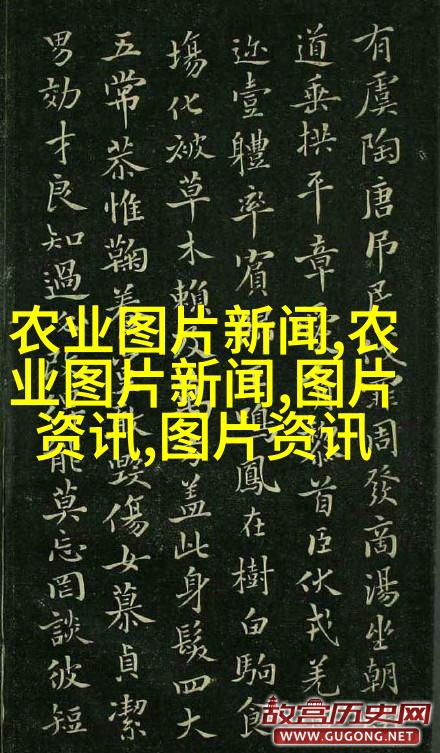 有虞陶唐吊民伐罪周發商湯坐朝
道垂拱平章黎首臣伏戎羌
迩壹體率賓鳴鳳在樹白駒食
場化被草木賴及方蓋此身髮四大
五常恭惟鞠養敢毀傷女慕貞潔
男効才良知過能莫忘罔談彼短
农业图片新闻,农
业图片新闻,图片
资讯,图片资讯
故宫历史网
WWW.GUGONG.NET